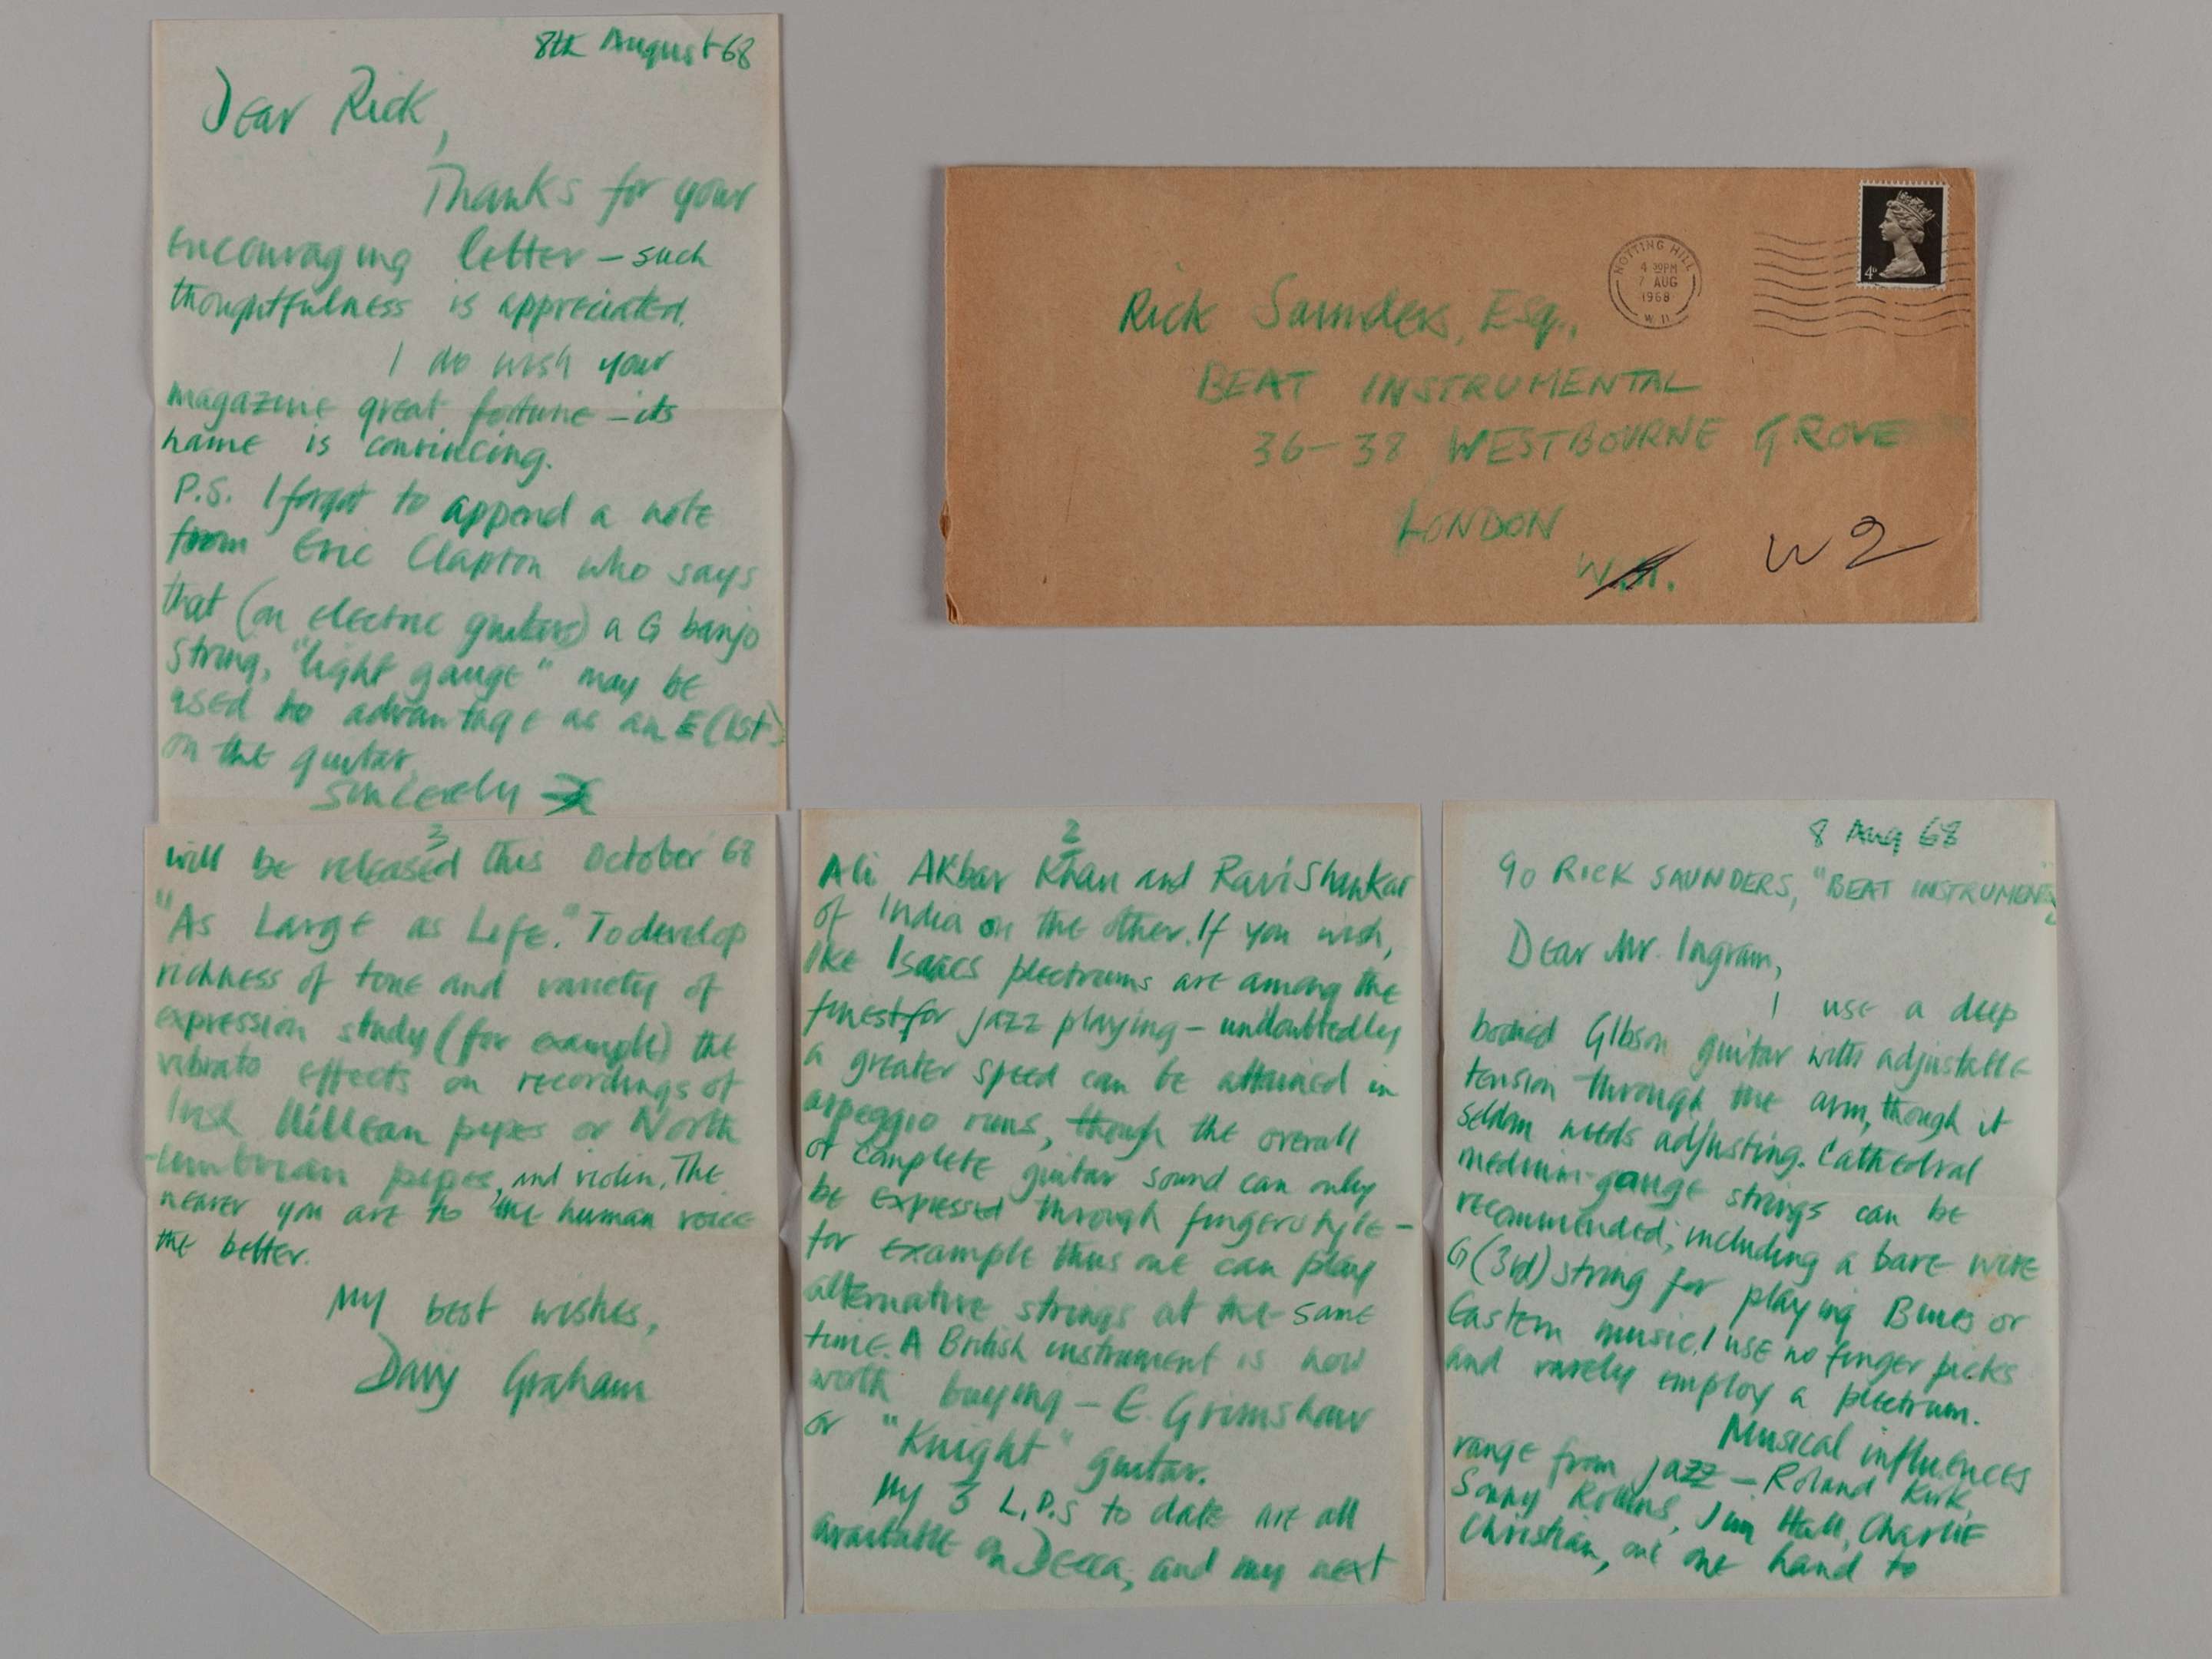 8th August 68
Dear Rick,
Thanks for your
encouraging letter – such
thoughtfulness is appreciated.
I do wish your
magazine great fortune – its
name is convincing.
P.S. I forgot to append a note
from Eric Clapton who says
that (on electric guitars) a G banjo
string, "light gauge" may be
used to advantage as an E (1st)
on the guitar.
Sincerely
NOTTING HILL
4 30PM
7 AUG
1968
W.11
4D
Rick Saunders, Esq.,
BEAT INSTRUMENTAL
36–38 WESTBOURNE GROVE
LONDON
W.11. W2
8 Aug 68
90 RICK SAUNDERS, "BEAT INSTRUMENTAL
Dear Mr. Ingram,
I use a deep
bodied Gibson guitar with adjustable
tension through the arm, though it
seldom needs adjusting. Cathedral
medium-gauge strings can be
recommended; including a bare wire
G (3rd) string for playing Blues or
Eastern music. I use no finger picks
and rarely employ a plectrum.
Musical influences
range from jazz – Roland Kirk,
Sonny Rollins, Jim Hall, Charlie
Christian, on one hand to
2
Ali Akbar Khan and Ravi Shankar
of India on the other. If you wish,
Ike Isaacs plectrums are among the
finest for jazz playing – undoubtedly
a greater speed can be attained in
arpeggio runs, though the overall
or complete guitar sound can only
be expressed through fingerstyle –
for example thus one can play
alternative strings at the same
time. A British instrument is now
worth buying – E. Grimshaw
or "Knight" guitar.
My 3 L.P.s to date are all
available on Decca, and my next
3
will be released this October 68
"As Large as Life." To develop
richness of tone and variety of
expression study (for example) the
vibrato effects on recordings of
Irish Uillean pipes or North
-umbrian pipes, and violin. The
nearer you are to the human voice
the better.
My best wishes,
Davy Graham